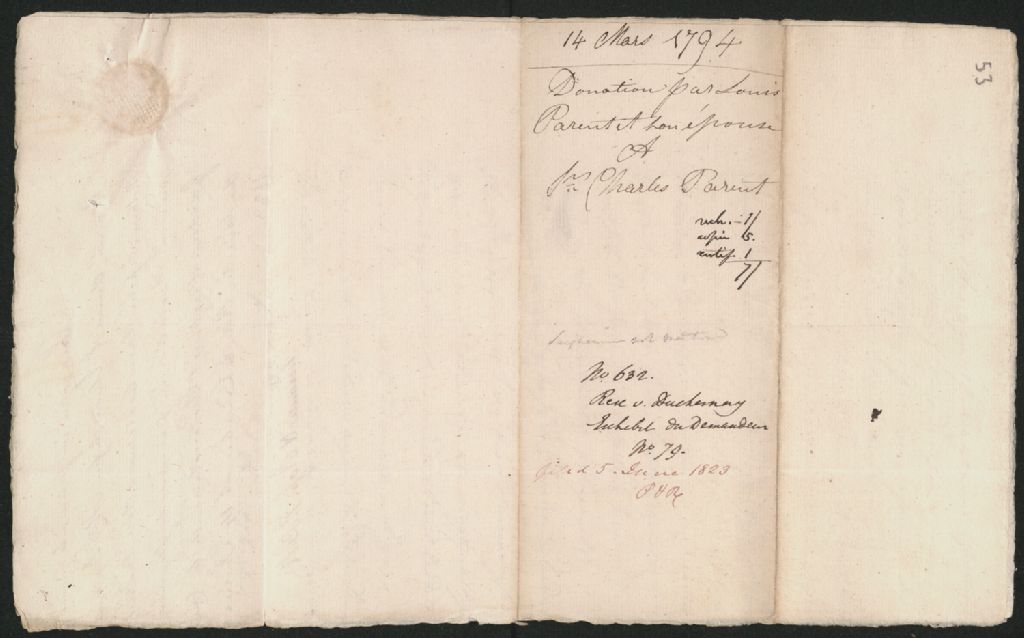 14 Mars 1794
Donation par Louis
Parent et son épouse
A
Sr. Charles Parent
rech. - 1/
copie 5.
certif. 1
7/
not
No 632.
Rex v. Duchesnay
Exhibit du Demandeur
No. 79.
filed 5. June 1823
53